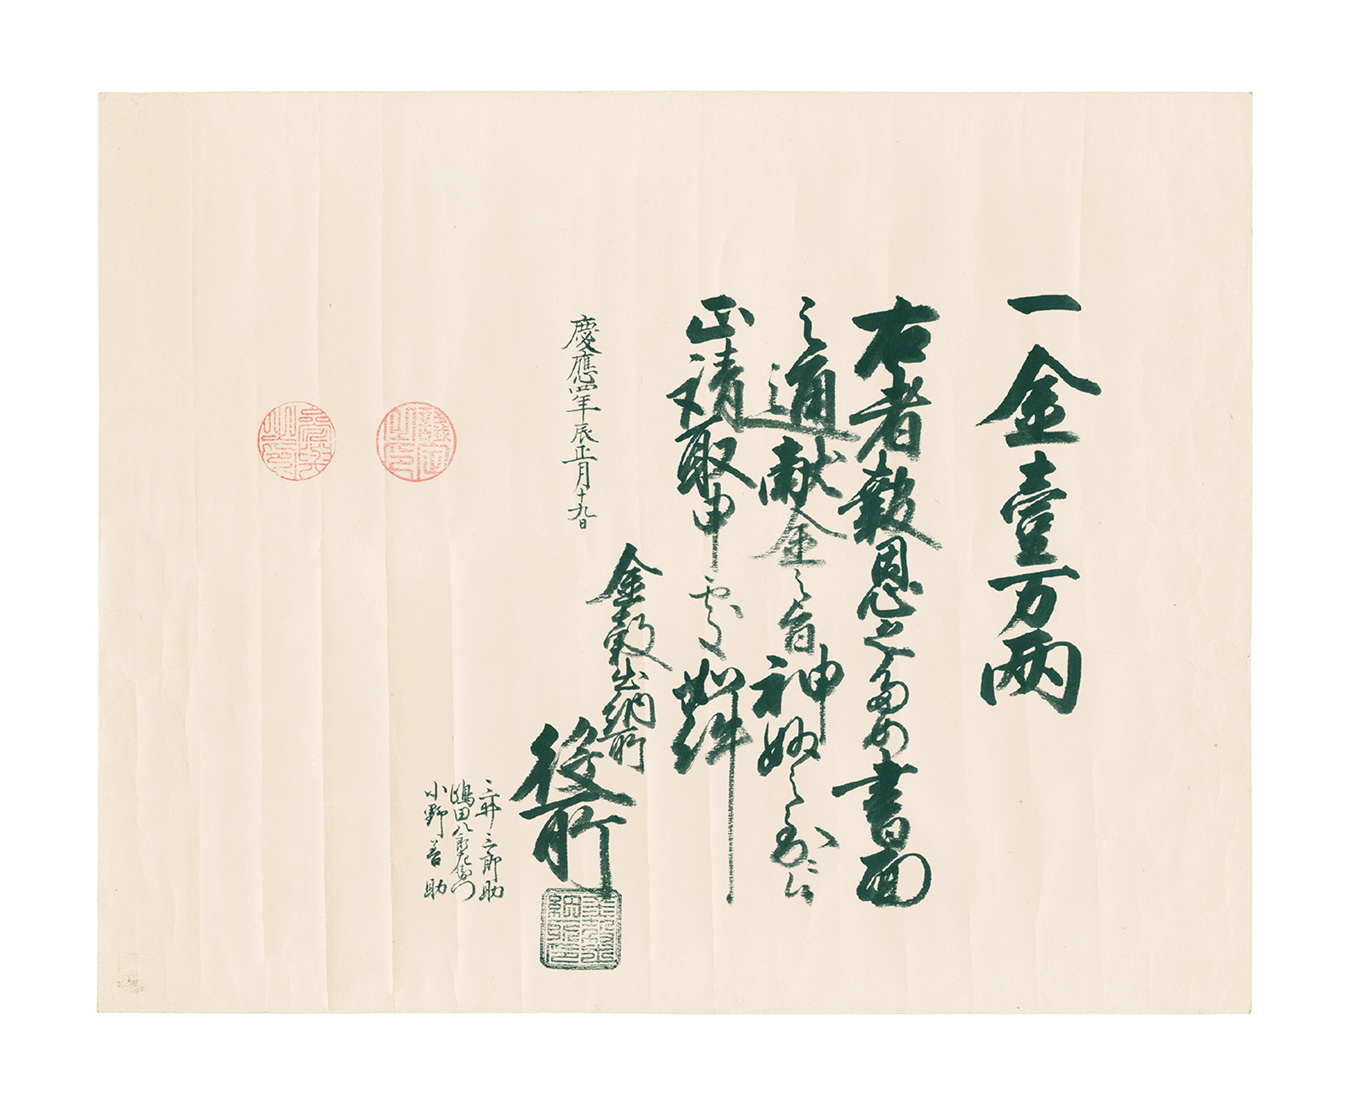 一金壹万兩
右者報恩之ため書面
之通献金之旨神妙之至ニ候
正請取申處如件
慶應四年辰正月十九日
金穀出納所
役所
三井三郎助
嶋田八郎左衛門
小野善助
金穀出納所印